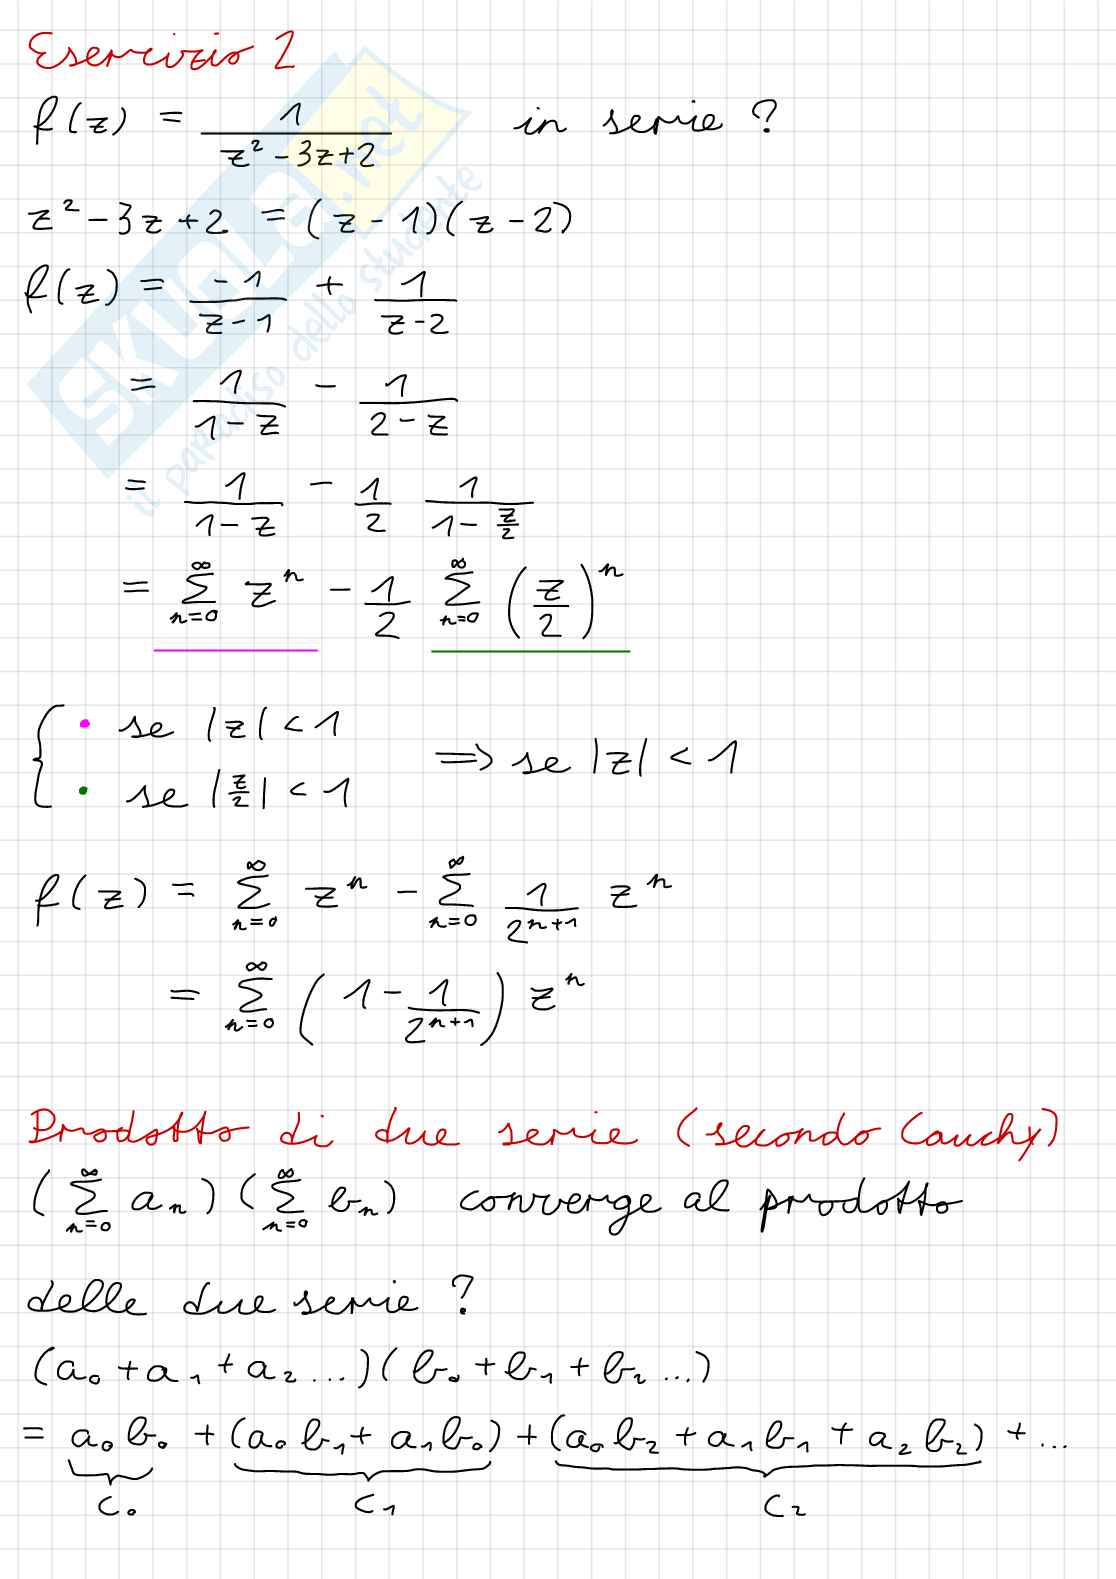 Esercizio 2
f(z) = 1/(z² - 3z + 2) in serie ?
z² - 3z + 2 = (z - 1)(z - 2)
f(z) = -1/(z - 1) + 1/(z - 2)
= 1/(1 - z) - 1/(2 - z)
= 1/(1 - z) - 1/2 1/(1 - z/2)
= ∑_{n=0}^{∞} zⁿ - 1/2 ∑_{n=0}^{∞} (z/2)ⁿ
{ • se |z| < 1
• se |z/2| < 1 ⟹ se |z| < 1
f(z) = ∑_{n=0}^{∞} zⁿ - ∑_{n=0}^{∞} 1/2^{n+1} zⁿ
= ∑_{n=0}^{∞} (1 - 1/2^{n+1}) zⁿ
Prodotto di due serie (secondo Cauchy)
(∑_{n=0}^{∞} aₙ) (∑_{n=0}^{∞} bₙ) converge al prodotto
delle due serie ?
(a₀ + a₁ + a₂ ...)(b₀ + b₁ + b₂ ...)
= a₀b₀ + (a₀b₁ + a₁b₀) + (a₀b₂ + a₁b₁ + a₂b₂) + ...
c₀ c₁ c₂
SKUOLA.net
il paradiso dello studente